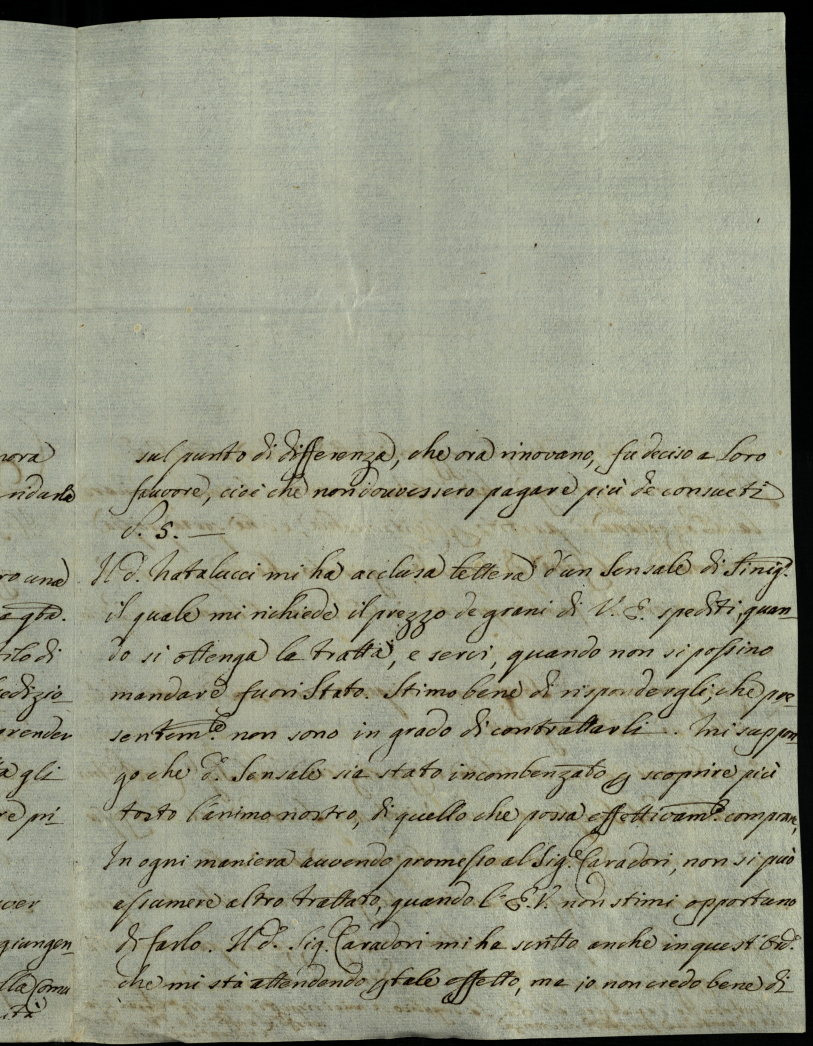 nora
ridarle
ro una
a qta.
tilo di
edizio-
render
a gli
re pri-
ver
giungen-
lla Comu
ità
sul punto di differenza, che ora rinovano, fu deciso a loro
favore, cioè che non douvessero pagare più de consueti
S. 5. —
Il d.o Natalucci mi ha acclusa lettera d'un Sensale di Sinig.a
il quale mi richiede il prezzo de grani di V. E. spediti, quan-
do si ottenga la tratta, e servi, quando non si possino
mandare fuori Stato. Stimo bene di rispondergli, che pre-
sentem.e non sono in grado di contrattarli. Mi suppon-
go che d.o Sensale sia stato incombenzato p scoprire più
tosto l'animo nostro, di quello che possa effettivam.e comprare,
In ogni maniera avvendo promesso al Sig.e Caradori, non si può
assumere altro trattato, quando l'E.V. non stimi opportuno
di farlo. Il d.o Sig.e Caradori mi ha scritto anche in quest'Ord.o
che mi stà attendendo p tale effetto, ma io non credo bene di